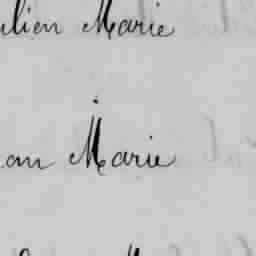 ulien Marie
an Marie